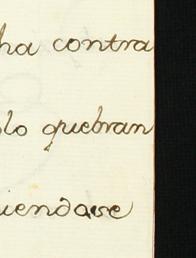 ha contra
blo quebran
uiendose